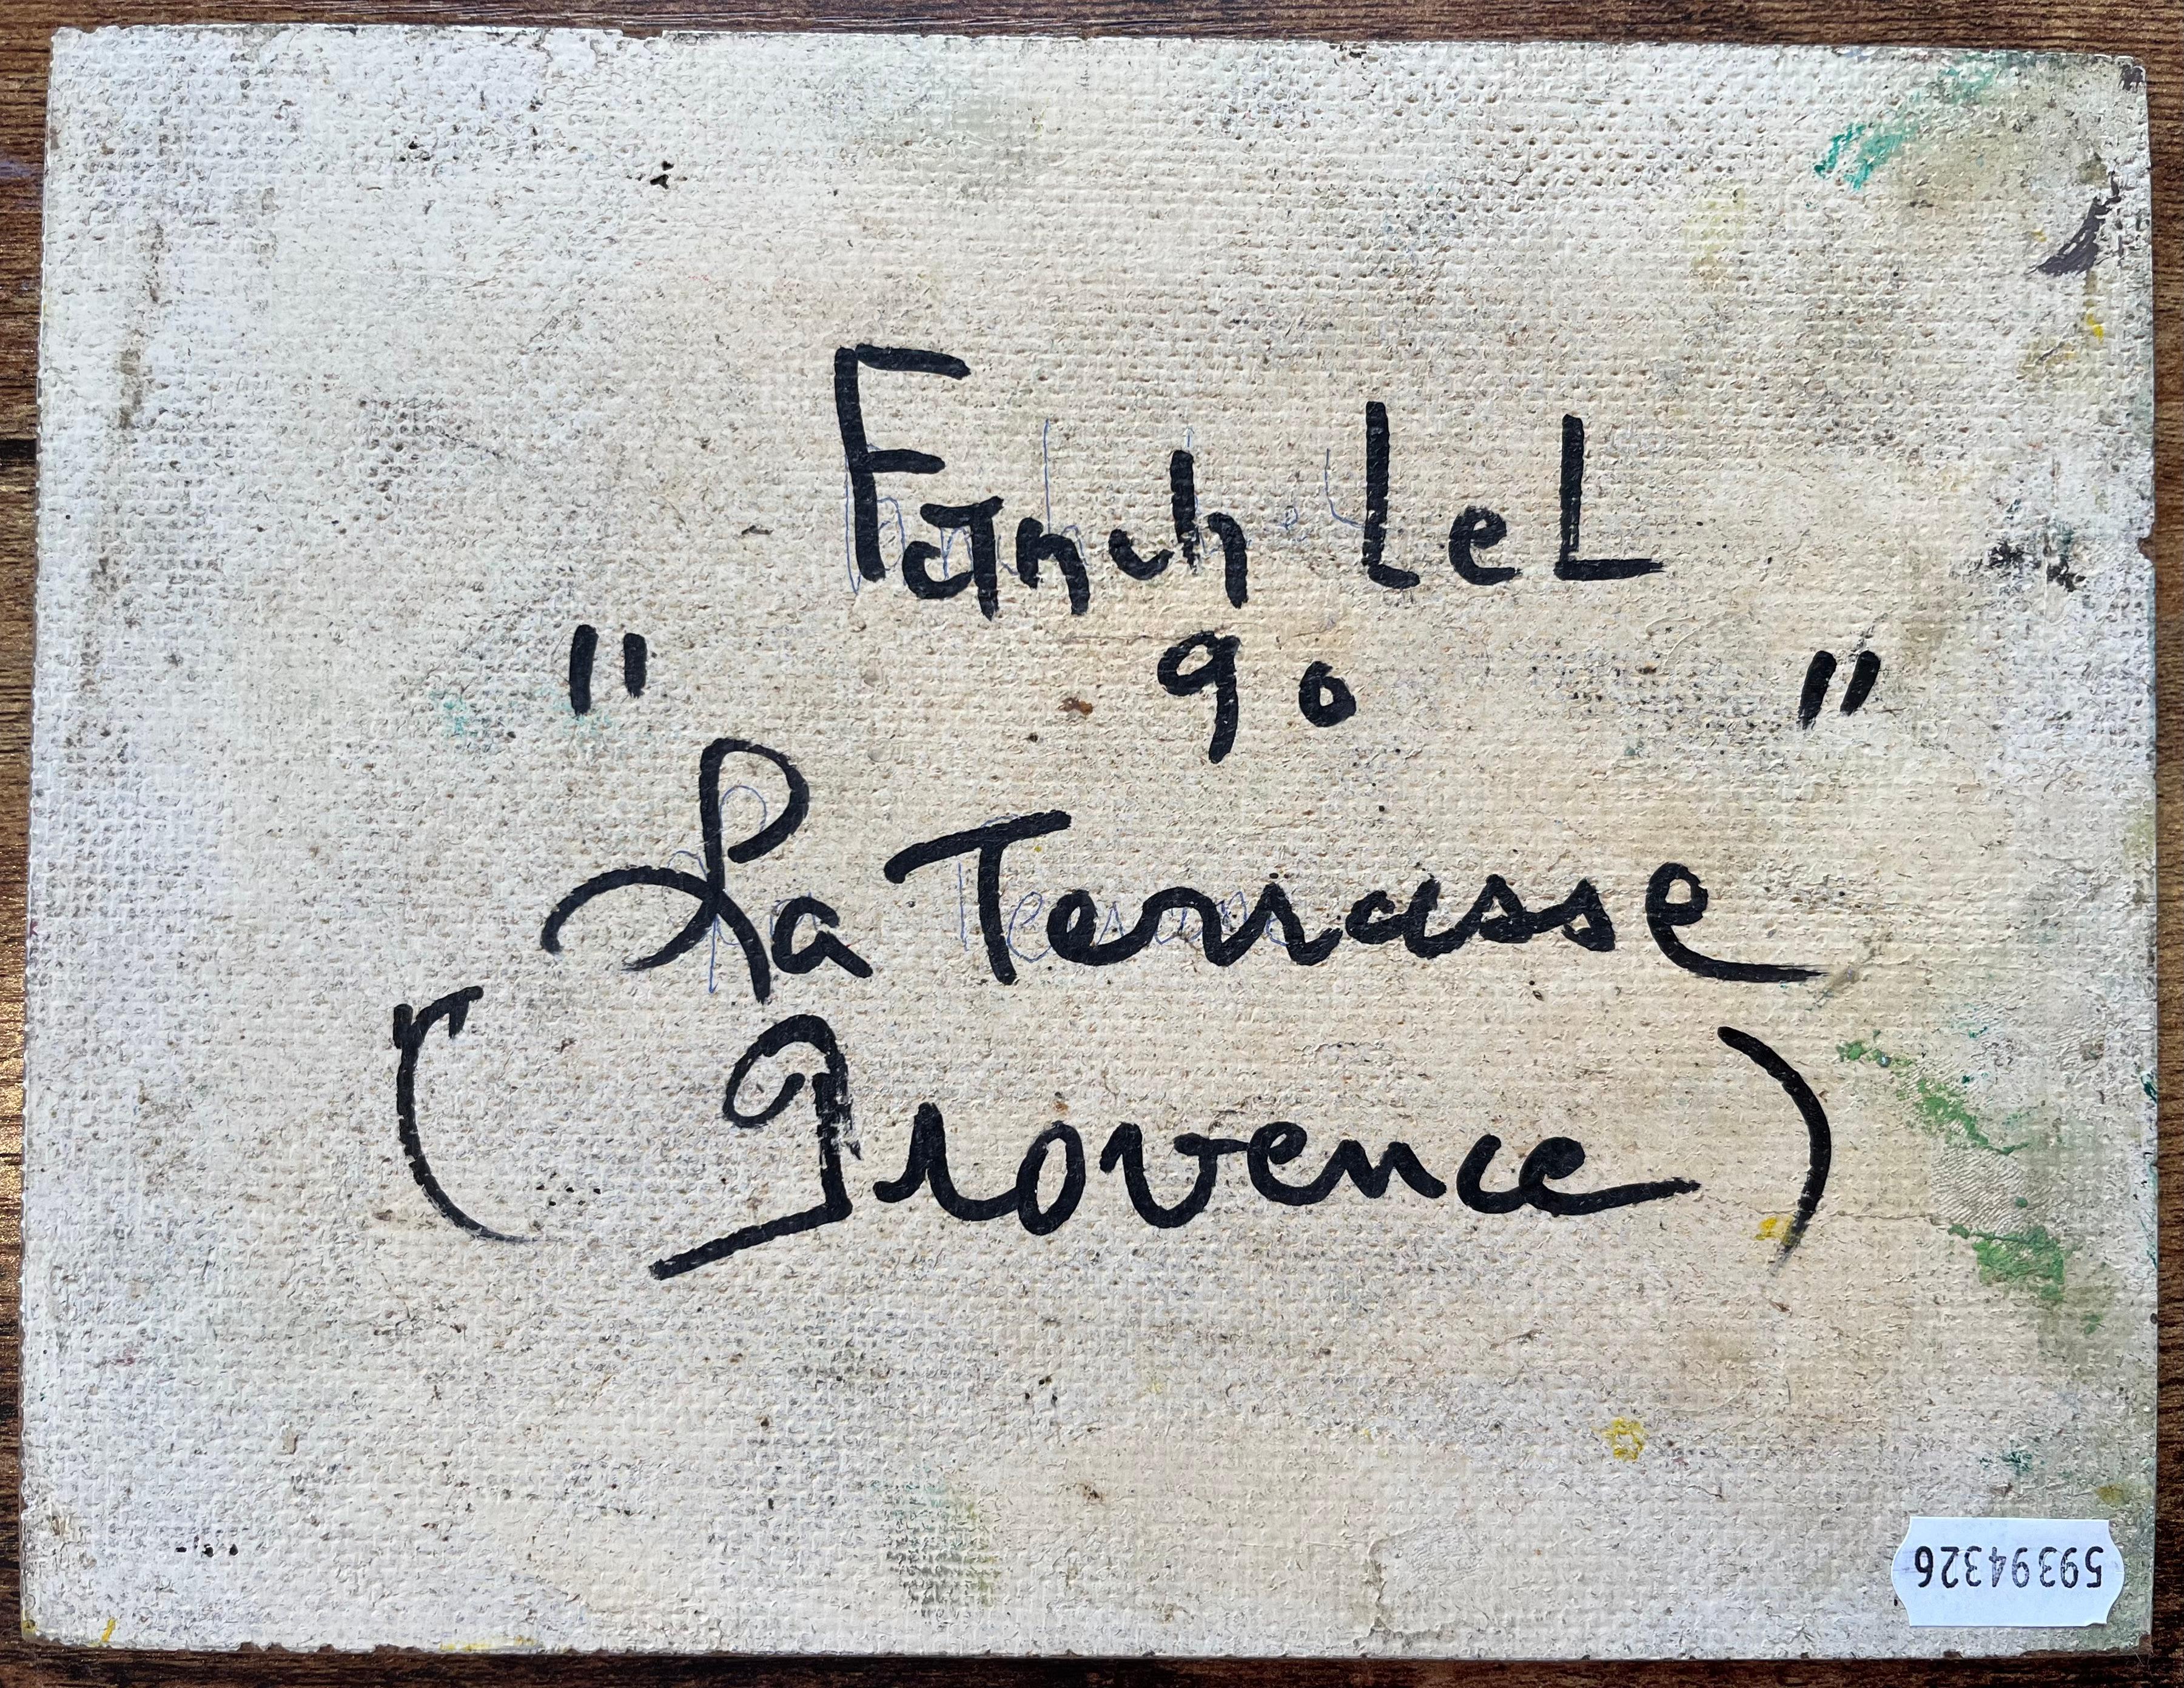 Fanch LeL
" 90 "
La Terrasse
(Provence)
59394326